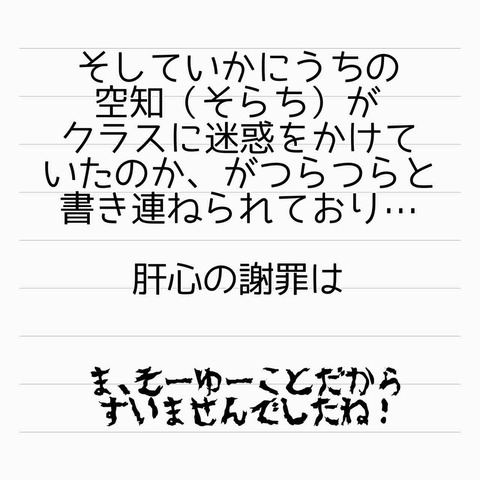 そしていかにうちの
空知（そらち）が
クラスに迷惑をかけて
いたのか、がつらつらと
書き連ねられており…
肝心の謝罪は
ま、そーゆーことだから
すいませんでしたね！